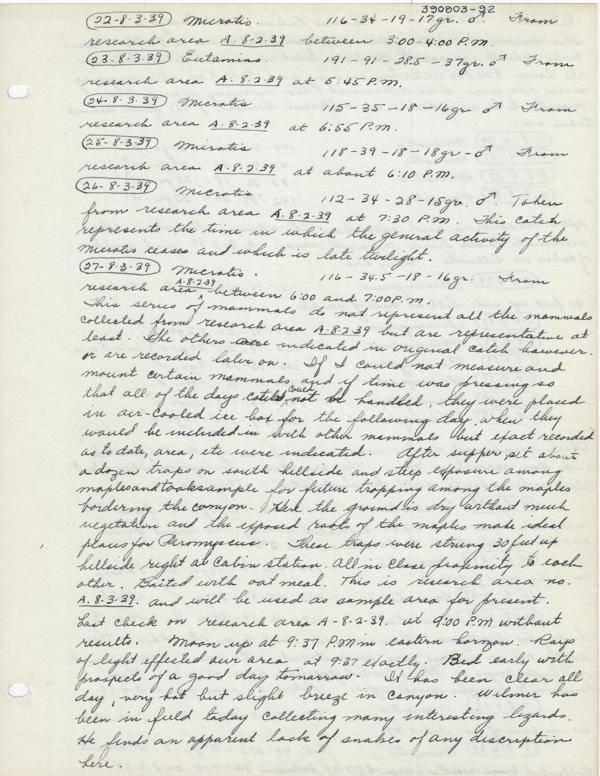 390803-92
(22-8-3-39) Microtis. 116-34-19-17gr. ♂. From
research area A.8-2.39 between 3:00-4:00 P.M.
(23-8-3-39) Eutamias. 191-91-28.5-37gr. ♂ From
research area A.8-2.39 at 5:45 P.M.
(24-8-3-39) Microtis 115-35-18-16gr ♂ From
research area A.8-2.39 at 6:55 P.M.
(25-8-3-39) Mirotis 118-39-18-18gr-♂ From
research area A.8-2.39 at about 6:10 P.M.
(26-8-3-39) Microtis. 112-34-28-15gr. ♂. Taken
from research area A.8-2-39 at 7:30 P.M. This catch
represents the time in which the general activity of the
Microtis ceases and which is late twilight.
(27-8-3-39) Microtis. 116-34.5-18-16gr. From
research area A-8-2-39 between 6:00 and 7:00 P.M.
This series of mammals do not represent all the mammals
collected from research area A-8-2-39 but are representative at
least. The others are indicated in original catch however.
or are recorded later on. If I could not measure and
mount certain mammals and if time was pressing so
that all of the days catch could not be handled, they were placed
in air-cooled ice box for the following day. when they
would be included in with other mammals but exact recorded
as to date, area, etc were indicated. After supper, set about
a dozen traps on south hillside and steep exposure among
maples and took sample for future trapping among the maples
bordering the canyon. Here the ground is dry without much
vegetation and the exposed roots of the maples make ideal
places for Peromyscus. These traps were strung 30 feet up
hillside right at Cabin station. All in close proximity to each
other. Baited with oat meal. This is research area no.
A.8-3-39. and will be used as sample area for present.
Last check on research area A-8-2-39. at 9:00 P.M without
results. Moon up at 9:37 P.M in eastern horizon. Rays
of light effected our area at 9:37 exactly. Bed early with
prospects of a good day tomorrow. It has been clear all
day, very hot but slight breeze in canyon. Wilmer has
been in field today collecting many interesting lizards.
He finds an apparent lack of snakes of any discription
here.